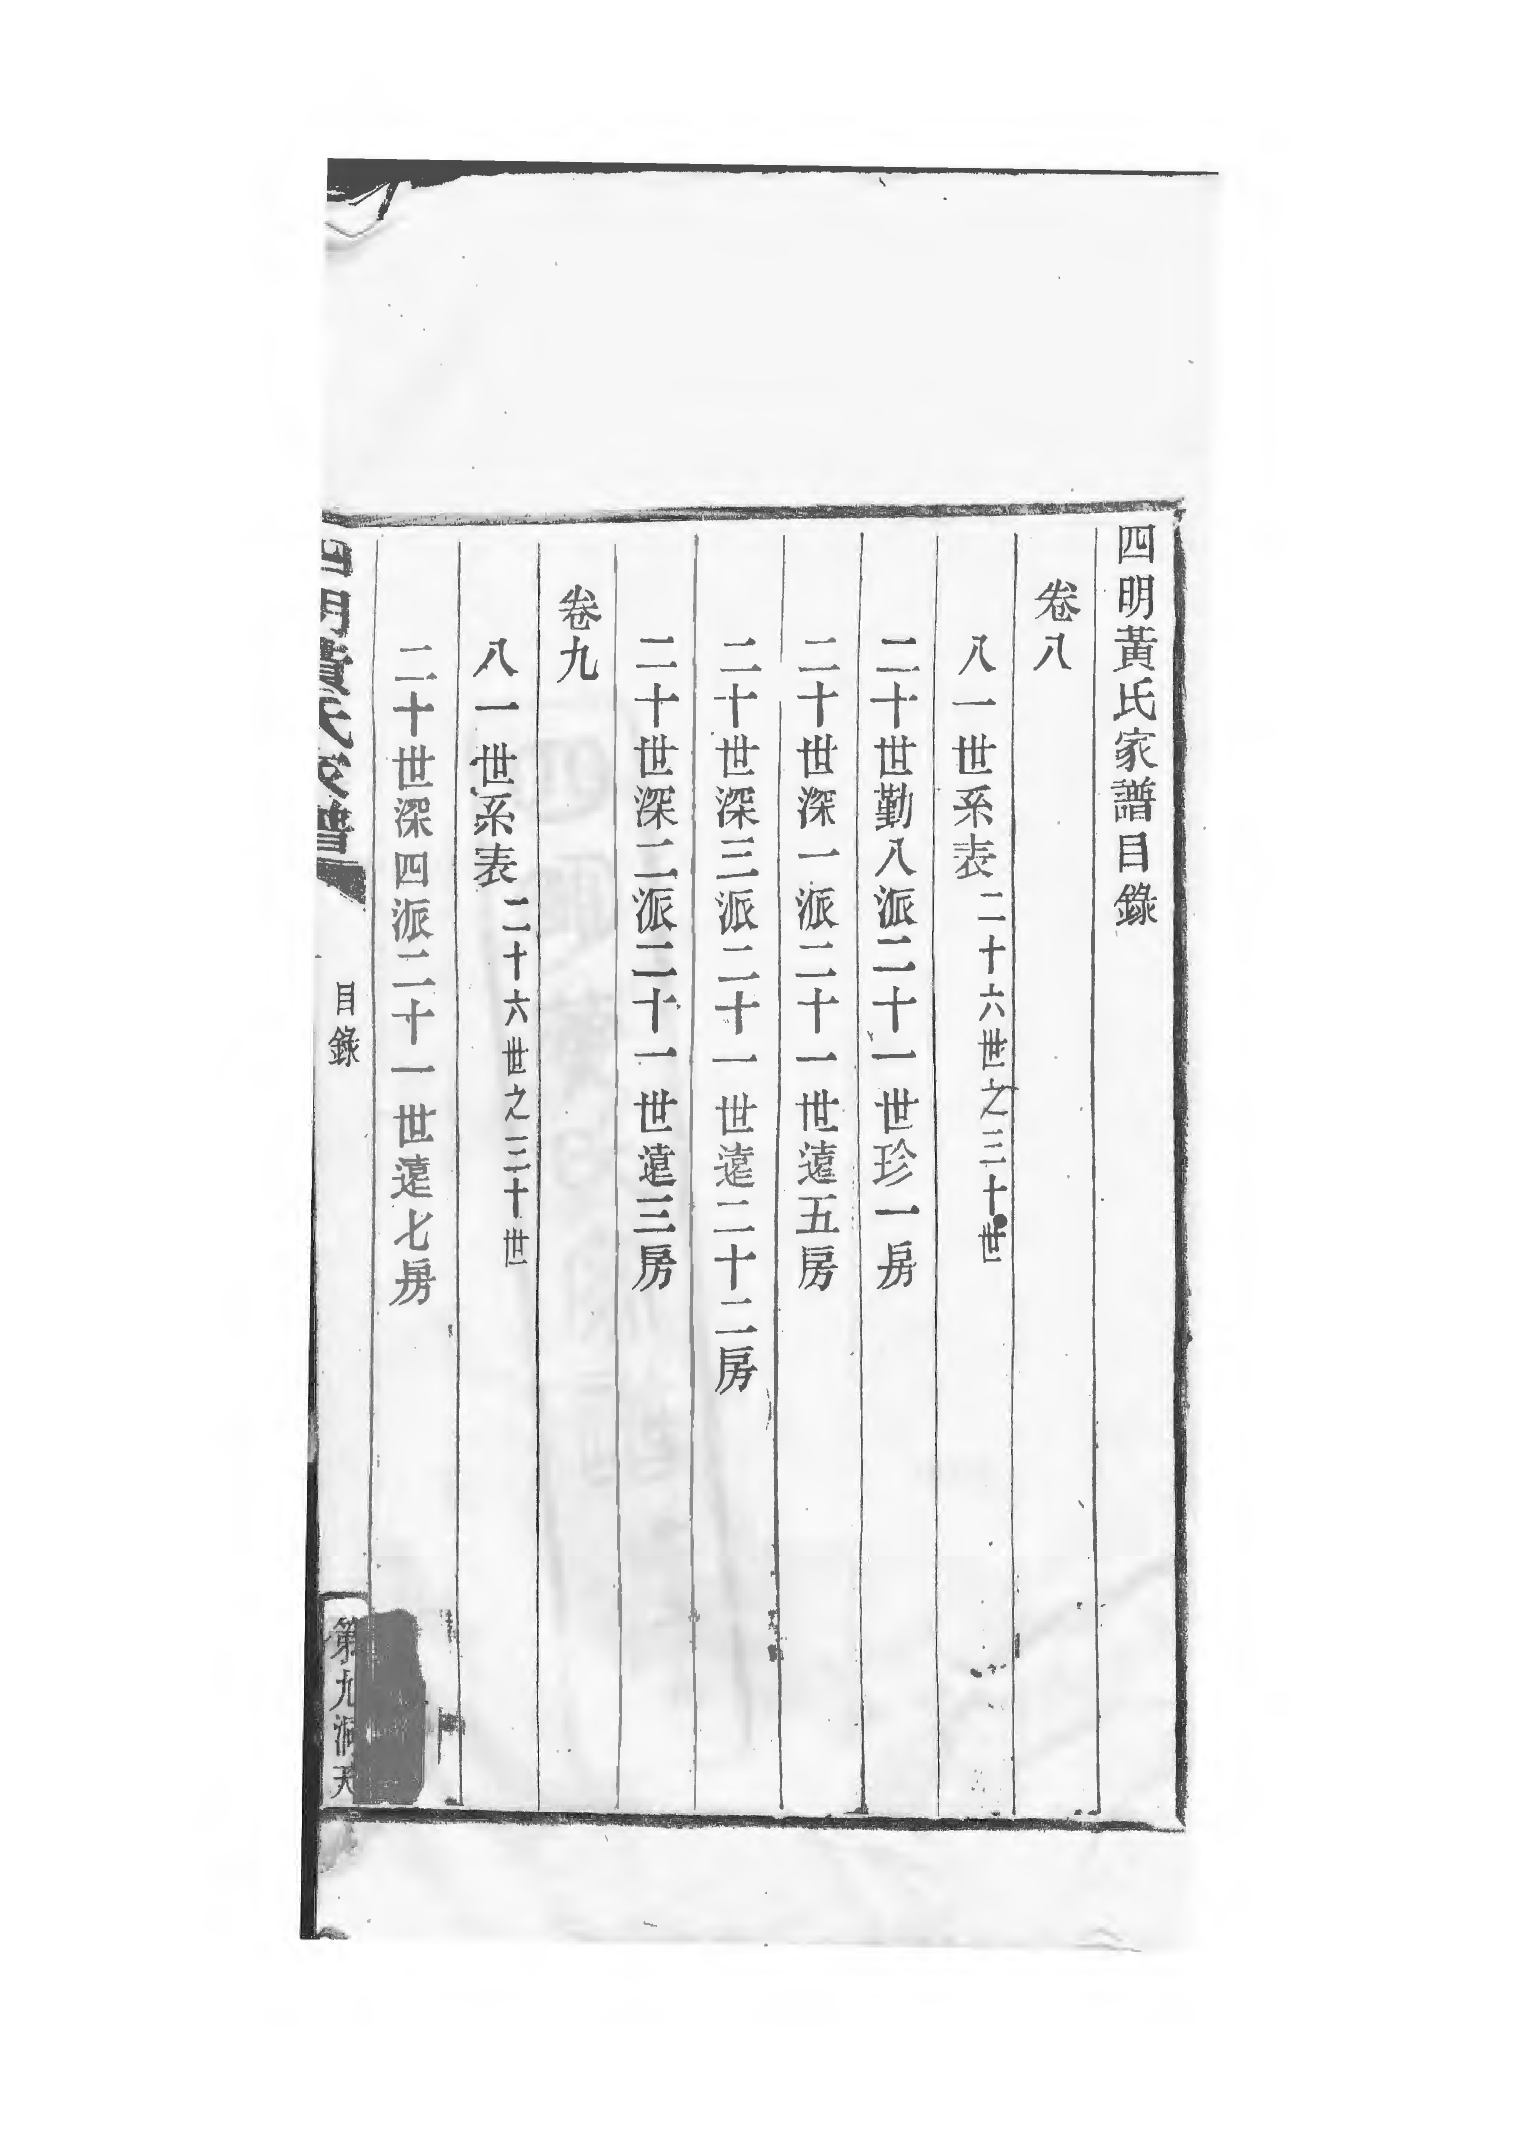 四明黃氏家譜目錄
卷八
八一世系表二十六世之三十世
二十世勤八派二十一世珍一房
二十世深一派二十一世遠五房
二十世深三派二十一世遠二十二房
二十世深二派二十一世遠三房
卷九
八一世系表二十六世之三十世
二十世深四派二十一世遠七房
四明黃氏家譜
目錄
第九洞天